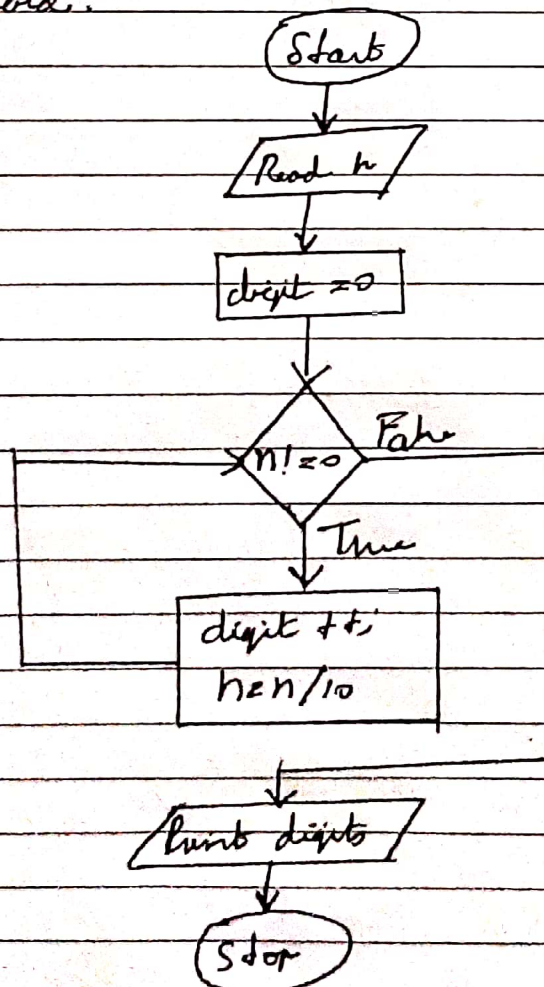 Start
Read n
digit =0
n!=0
False
True
digit ++;
n=n/10
Print digits
Stop